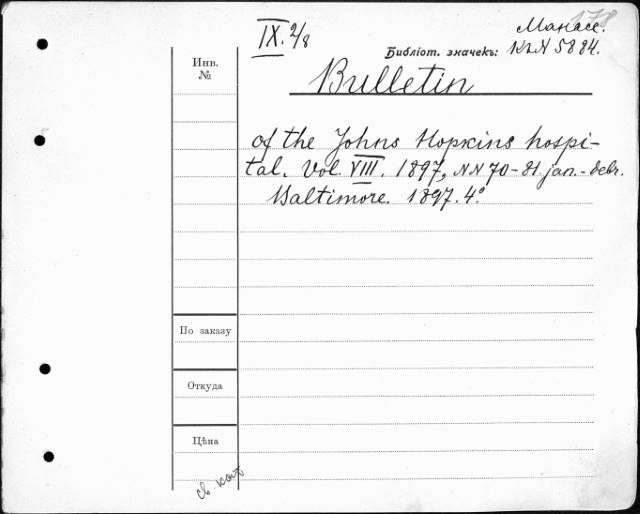 178
IX. 2/8
Манасс.
Библіот. значекъ: КъN 5884.
Инв.
№
Bulletin
of the Johns Hopkins hospi-
tal. Vol. VIII. 1897, NN 70-81. jan.-debr.
Baltimore. 1897. 4°
По заказу
Откуда
Цѣна
св. кат